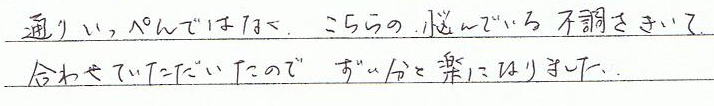 通りいっぺんではなく、こちらの、悩んでいる不調をきいて
合わせていただいたので ずい分と楽になりました。